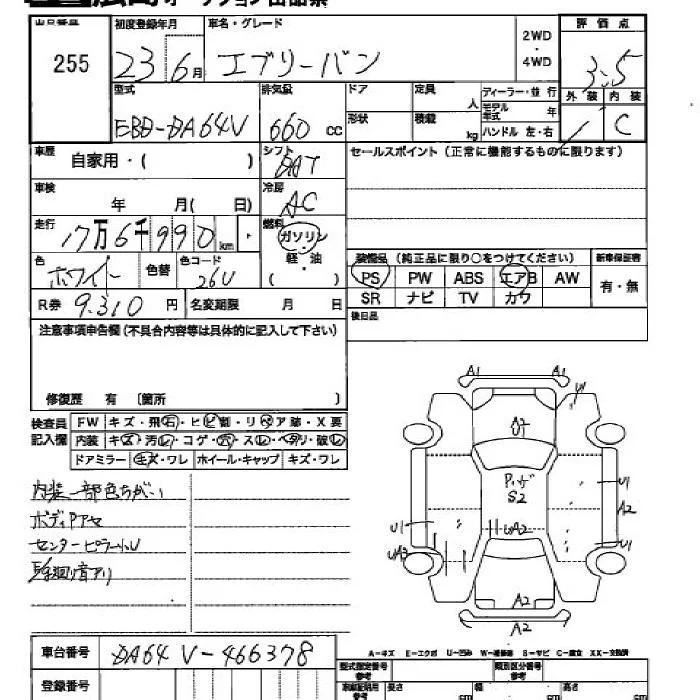 オークション出品票
出品番号 初度登録年月 車名・グレード 2WD・4WD 評価点
255 23 6月 エブリーバン 3.5
型式 排気量 ドア 定員 人 ディーラー・並行 外装 内装
EBD-DA64V 660cc 形状 積載 kg モデル年式 年 ハンドル 左・右 C
車歴 自家用・( ) シフト DAT セールスポイント (正常に機能するものに限ります)
車検 年 月( 日) 冷房 AC
走行 17万6千990km 燃料 ガソリン 軽・油 ( )
色 ホワイト 色替 色コード 26U
装備品 (純正品に限り○をつけてください) 新車保証書
PS PW ABS エアB AW 有・無
SR ナビ TV カワ
R券 9.310円 名変期限 月 日 後日品
注意事項申告欄 (不具合内容等は具体的に記入して下さい)
修復歴 有 〔箇所 〕
検査員記入欄 FW キズ・飛石・ヒビ割・リペア跡・X要
内装 キズ・汚レ・コゲ・穴・スレ・ヘタリ・破レ
ドアミラー キズ・ワレ ホイール・キャップ キズ・ワレ
内装一部色ちがい
ボディPアセ
センターピラー小U
A1 A1
W
A2
S2
U1
A2
U1 UA2 U1
UA2
A2
A2
A-キズ E-エクボ U-凹み W-補修跡 S-サビ C-腐食 XX-交換済
車台番号 DA64V-466378
登録番号
型式指定番号 参考 類別区分番号 参考
長さ cm 幅 cm 高さ cm